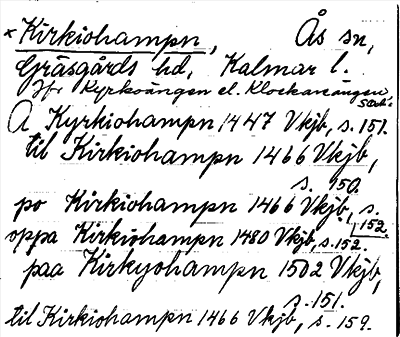 × Kirkiohampn, Ås sn,
Gräsgårds hd, Kalmar l.
Jfr Kyrkoängen el. Klockareängen
A Kyrkiohampn 1447 Vkjb, s. 151.
til Kirkiohampn 1466 Vkjb,
s. 150.
po Kirkiohampn 1466 Vkjb, s.
152.
oppa Kirkiohampn 1480 Vkjb, s. 152.
paa Kirkyohampn 1502 Vkjb,
s. 151.
til Kirkiohampn 1466 Vkjb, s. 159.